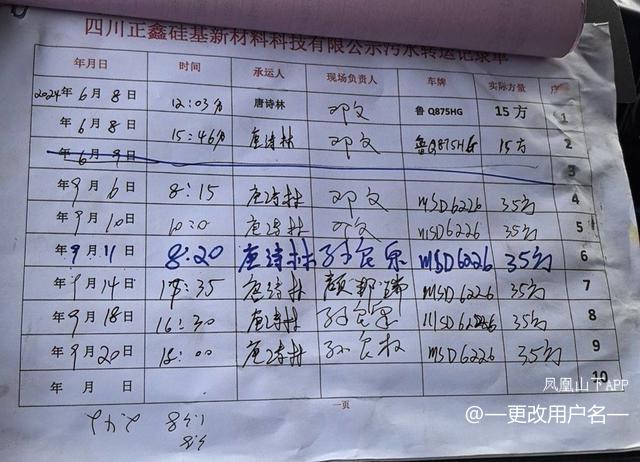 四川正鑫硅基新材料科技有限公示污水转运记录单
年月日 时间 承运人 现场负责人 车牌 实际方量 序
2024年6月8日 12:03分 唐诗林 邓文 鲁Q875HG 15方 1
年6月8日 15:46分 唐诗林 邓文 鲁Q875HG 15方 2
年6月9日 3
年9月6日 8:15 唐诗林 邓文 MSD6226 35方 4
年9月10日 10:0 唐诗林 邓文 MSD6226 35方 5
年9月11日 8:20 唐诗林 MSD6226 35方 6
年9月14日 17:35 唐诗林 MSD6226 35方 7
年9月18日 16:30 唐诗林 MSD6226 35方 8
年9月20日 18:00 唐诗林 MSD6226 35方 9
年月日 10
一页
凤凰山下APP
@一更改用户名一